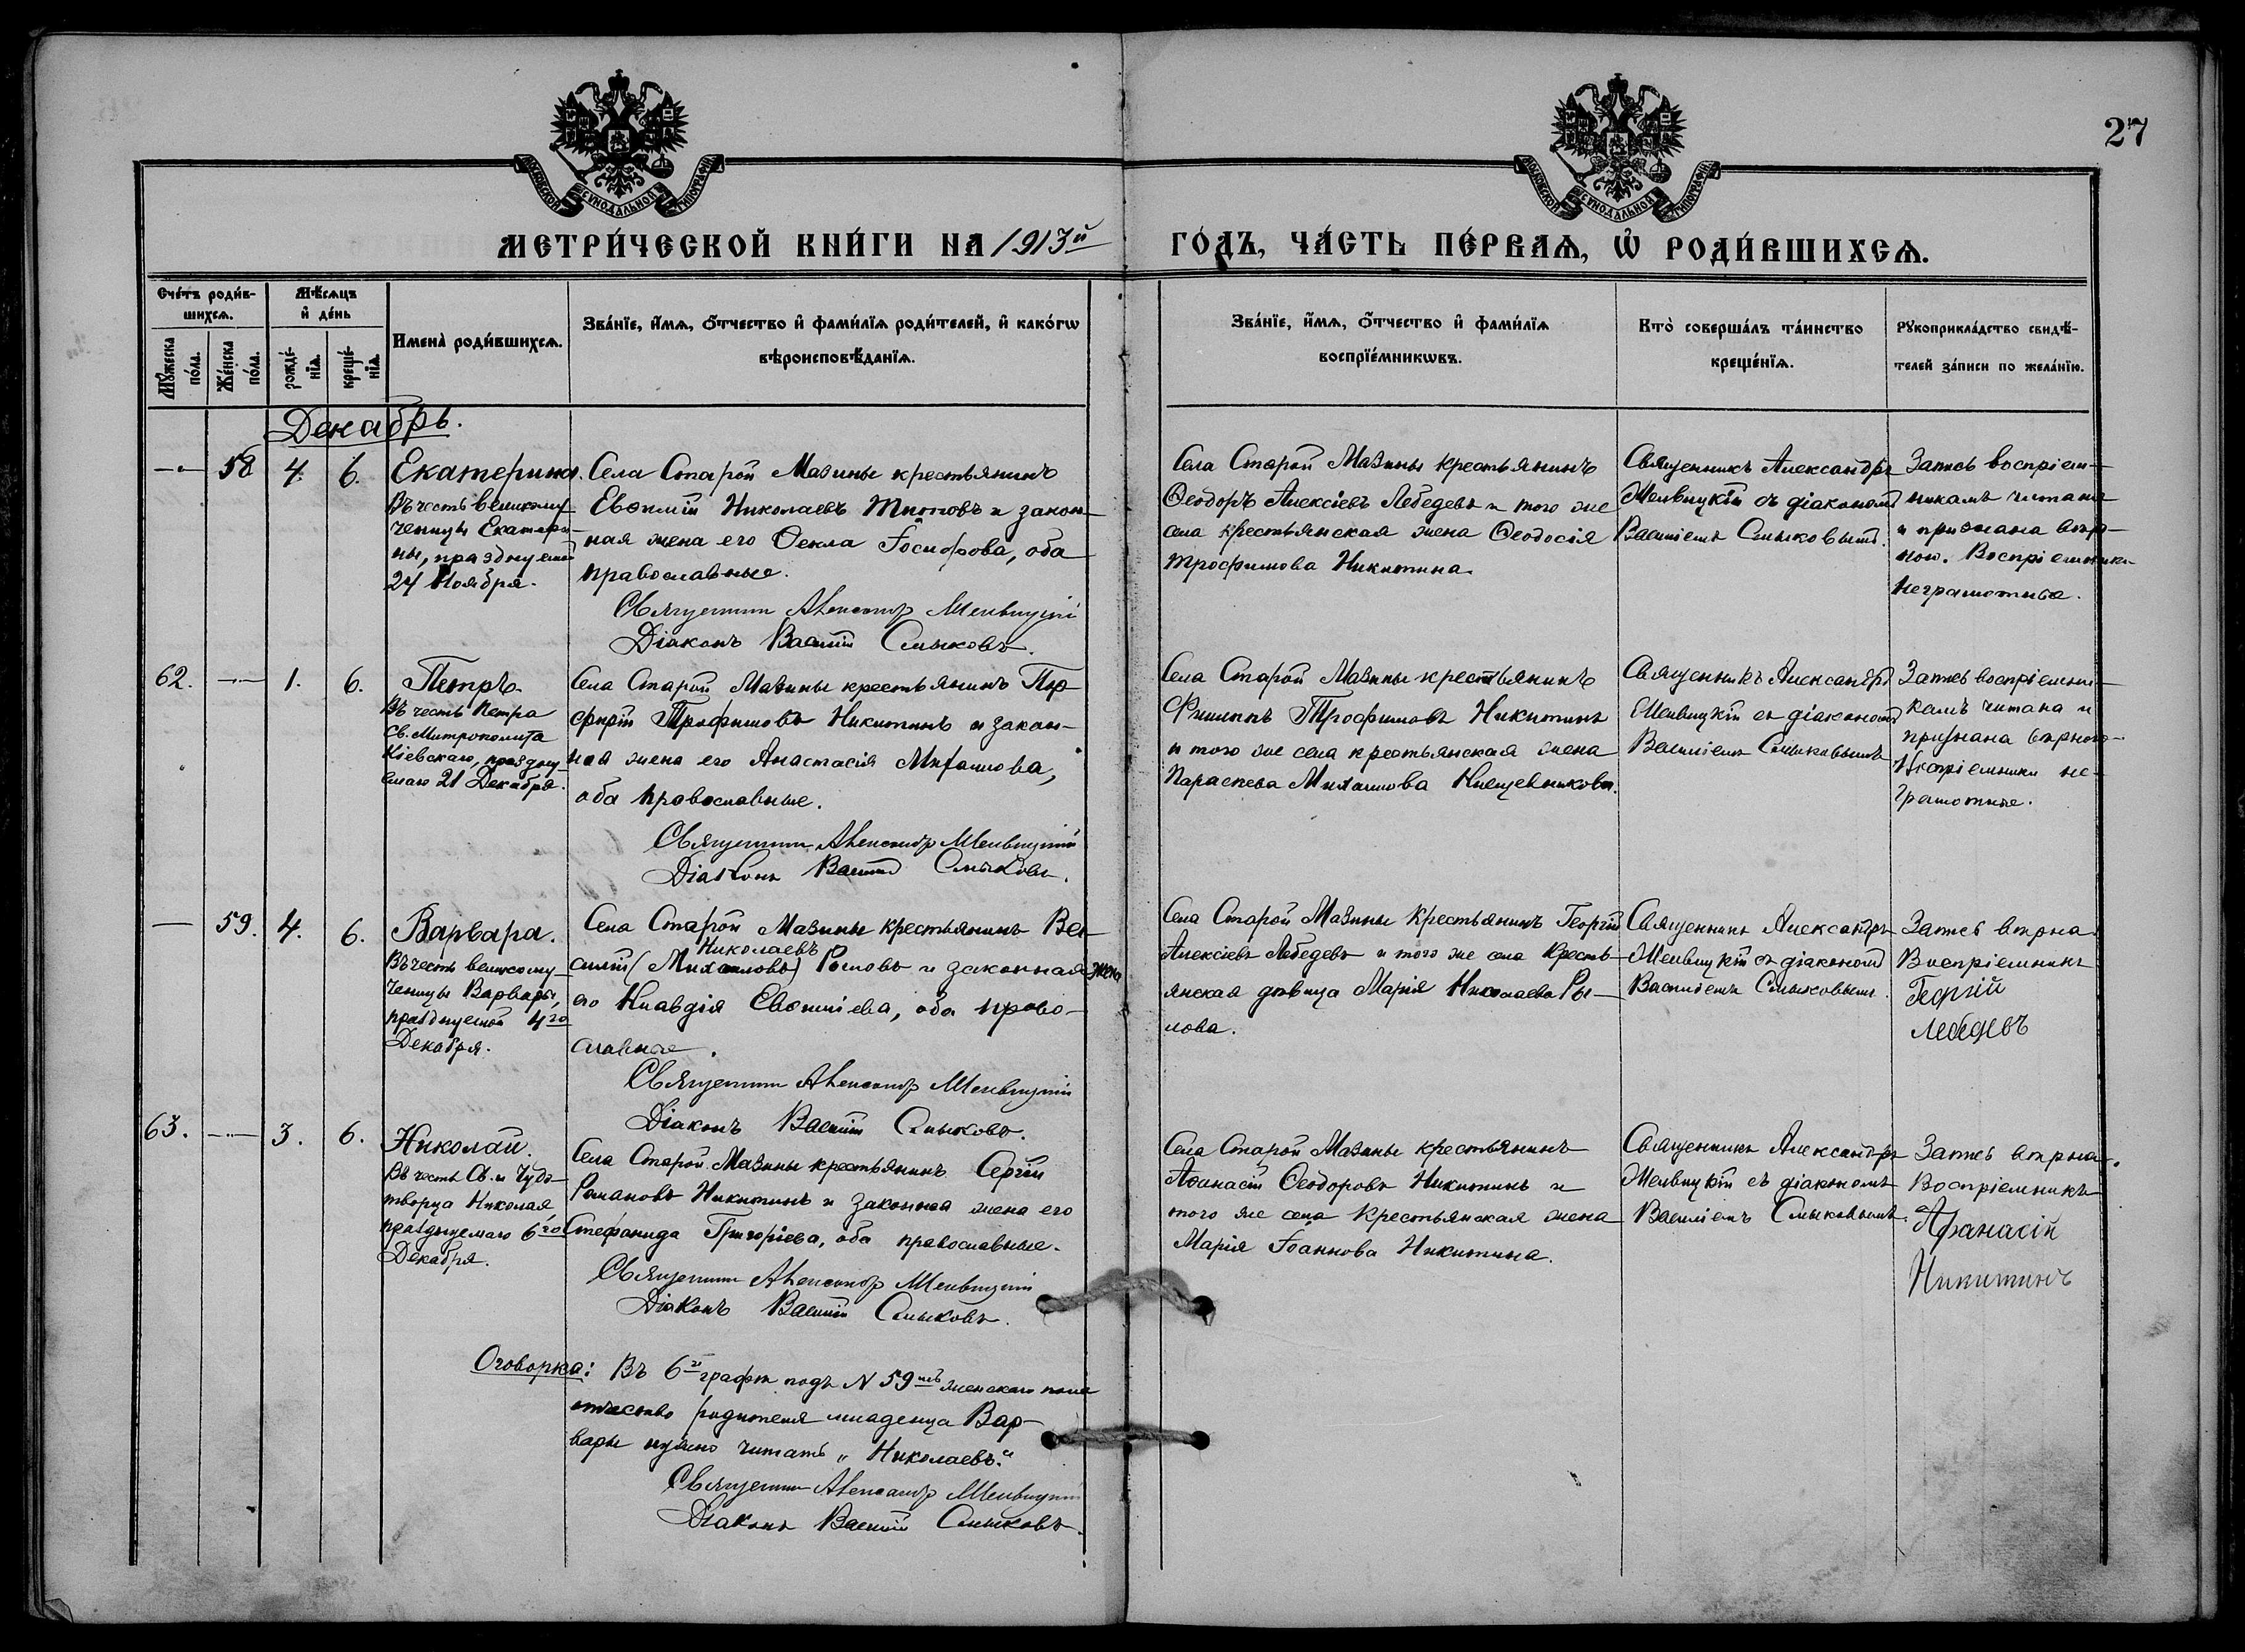 27
МОСКОВСКОЙ СѴНОДАЛЬНОЙ ТИПОГРАФІИ
МОСКОВСКОЙ СѴНОДАЛЬНОЙ ТИПОГРАФІИ
МЕТРИ́ЧЕСКОЙ КНИ́ГИ НА 1913й ГО́ДЪ, ЧА́СТЬ ПЕ́РВАѦ, Ѡ҆ РОДИ́ВШИХСѦ.
Сче́тъ роди́в-
шихсѧ.
Мѣ́сѧцъ
и҆ де́нь
Мꙋ́жеска
по́ла.
Же́нска
по́ла.
рожде́-
нїѧ.
креще́-
нїѧ.
Имена̀ роди́вшихсѧ.
Зва́нїе, и҆́мѧ, ѻ҆́тчество и҆ фами́лїѧ роди́телей, и҆ како́гѡ
вѣроисповѣ́данїѧ.
Зва́нїе, и҆́мѧ, ѻ҆́тчество и҆ фами́лїѧ
воспрїе́мникѡвъ.
Кто̀ соверша́лъ та́инство
креще́нїѧ.
Рꙋкоприкла́дство свидѣ́-
телей за́писи по жела́нїю.
Декабрь.
— 58 4. 6.
Екатерина.
Въ честь великому-
ченицы Екатери-
ны, празднуемой
24 Ноября.
Села Старой Мазины крестьянинъ
Евѳимій Николаевъ Титовъ и закон-
ная жена его Ѳекла Іосифова, оба
православные.
Священникъ Александръ Мелвицкій
Діаконъ Василій Смыковъ.
Села Старой Мазины крестьянинъ
Ѳеодоръ Алексіевъ Лебедевъ и того же
села крестьянская жена Ѳеодосія
Трофимова Никитина.
Священникъ Александръ
Мелвицкій съ діакономъ
Василіемъ Смыковымъ.
Запись воспріем-
никамъ читана
и признана вѣр-
ною. Воспріемники
неграмотные.
62. — 1. 6.
Петръ.
Въ честь Петра
Св. Митрополита
Кіевскаго, праздну-
емаго 21 Декабря.
Села Старой Мазины крестьянинъ Пор-
фирій Трофимовъ Никитинъ и закон-
ная жена его Анастасія Михаилова,
оба православные.
Священникъ Александръ Мелвицкій
Діаконъ Василій Смыковъ.
Села Старой Мазины крестьянинъ
Филиппъ Трофимовъ Никитинъ
и того же села крестьянская жена
Параскева Михаилова
Священникъ Александръ
Мелвицкій съ діакономъ
Василіемъ Смыковымъ
Запись воспріемни-
камъ читана и
признана вѣрною.
Воспріемники не-
грамотные.
— 59. 4. 6.
Варвара.
Въ честь великому-
ченицы Варвары,
празднуемой 4го
Декабря.
Села Старой Мазины крестьянинъ Ва-
Николаевъ
силій (Михаиловъ) Рыловъ и законная жена
его Клавдія Евѳиміева, оба право-
славные.
Священникъ Александръ Мелвицкій
Діаконъ Василій Смыковъ.
Села Старой Мазины крестьянинъ Георгій
Алексіевъ Лебедевъ и того же села кресть-
янская дѣвица Марія Николаева Ры-
лова.
Священникъ Александръ
Мелвицкій съ діакономъ
Василіемъ Смыковымъ.
Запись вѣрна.
Воспріемникъ
Георгій
Лебедевъ
63. — 3. 6.
Николай.
Въ честь Св. и Чудо-
творца Николая,
празднуемаго 6го
Декабря.
Села Старой Мазины крестьянинъ Сергій
Романовъ Никитинъ и законная жена его
Стефанида Григоріева, оба православные.
Священникъ Александръ Мелвицкій
Діаконъ Василій Смыковъ.
Села Старой Мазины крестьянинъ
Аѳанасій Ѳеодоровъ Никитинъ и
того же села крестьянская жена
Марія Іоаннова Никитина.
Священникъ Александръ
Мелвицкій съ діакономъ
Василіемъ Смыковымъ.
Запись вѣрна.
Воспріемникъ
Афанасій
Никитинъ
Оговорка: Въ 6й графѣ подъ N 59мъ женскаго пола
отчество родителя младенца Вар-
вары нужно читать „Николаевъ."
Священникъ Александръ Мелвицкій
Діаконъ Василій Смыковъ.